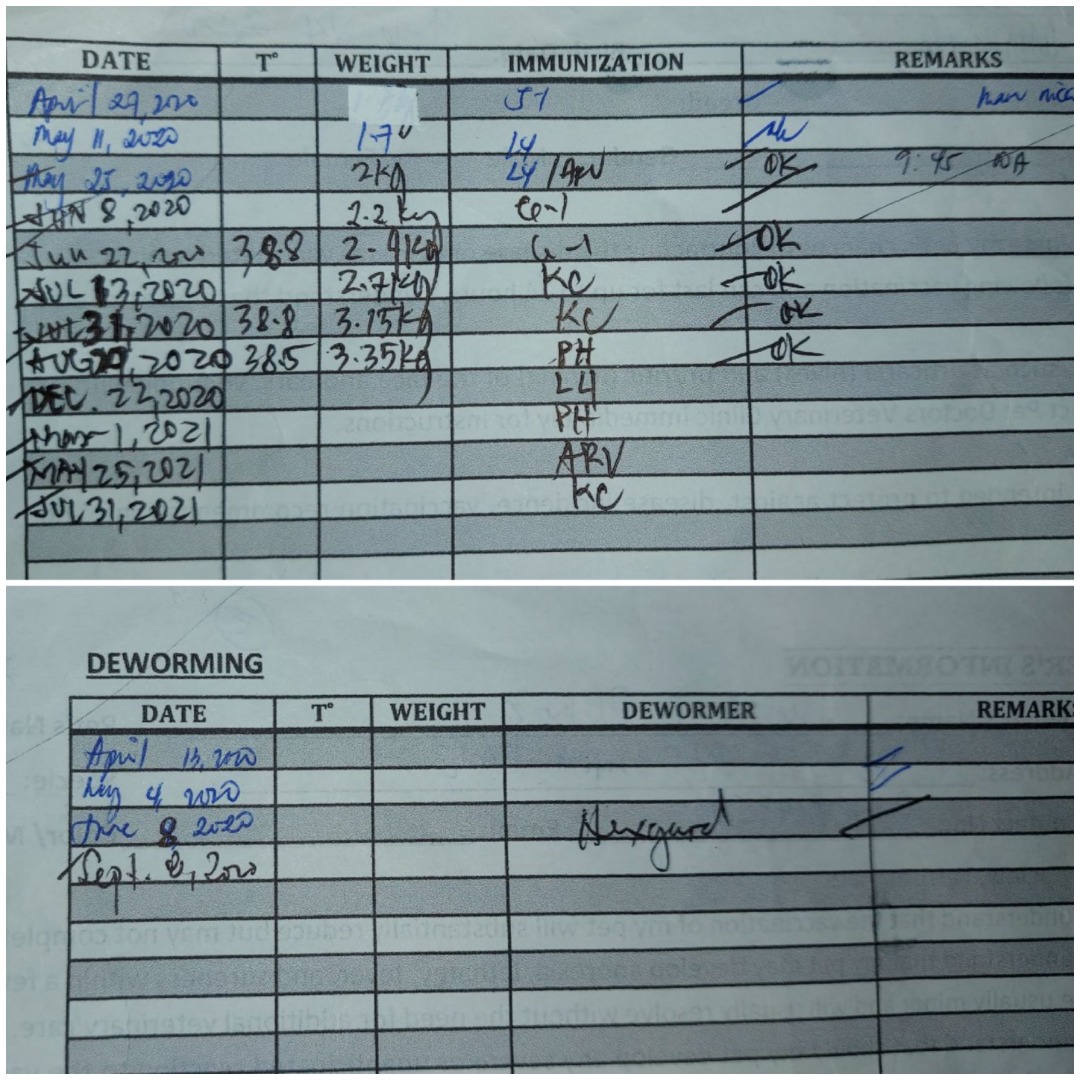 DATE T° WEIGHT IMMUNIZATION REMARKS
April 29, 2020 51
May 11, 2020 1.7 L4
May 25, 2020 2kg L4 /ARV OK 9:45
JUN 8, 2020 2.2 kg Co-1
Jun 22, 2020 38.8 2.4kg Co-1 OK
JUL 13, 2020 2.7kg KC OK
JUL 31, 2020 38.8 3.15kg KC OK
AUG 29, 2020 38.5 3.35kg PH OK
DEC. 22, 2020 L4
Mar 1, 2021 PH
MAY 25, 2021 ARV
JUL 31, 2021 KC
DEWORMING
DATE T° WEIGHT DEWORMER REMARK
April 13, 2020
May 4, 2020
June 8 2020 Nexgard
Sept. 8, 2020